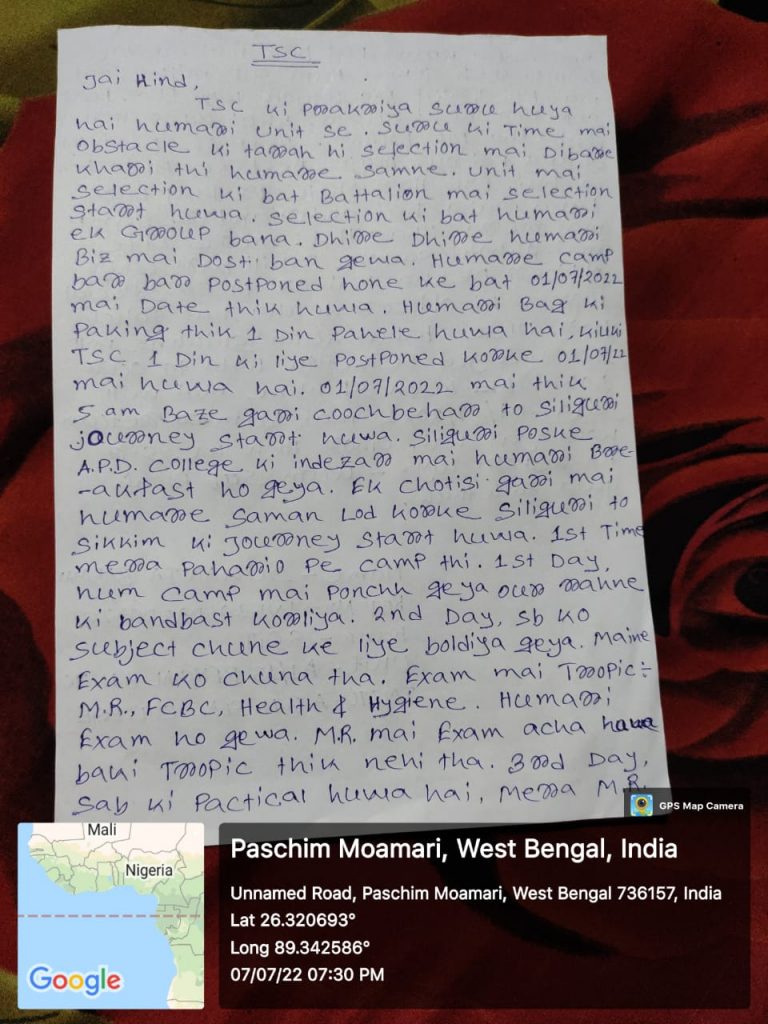 TSC
Jai Hind,
TSC ki prakriya suru huya
hai humari unit se. suru ki Time mai
obstacle ki tarrah hi selection mai Dibare
kharri thi humarre samne. unit mai
selection ki bat Battalion mai selection
start huwa. selection ki bat humari
ek GROUP bana. Dhirre Dhirre humari
Biz mai Dost ban gewa. Humarre camp
barr barr Postponed hone ke bat 01/07/2022
mai Date thik huwa. Humari Bag ki
Paking thik 1 Din Pahele huwa hai, kiuki
TSC 1 Din ki liye Postponed korke 01/07/22
mai huwa hai. 01/07/2022 mai thik
5 am Baze garri coochbeharr to Siliguri
journey start huwa. Siliguri Poske
A.P.D. College ki indezarr mai humari Bre-
-akfast ho geya. Ek chotisi garri mai
humarre saman Lod korke Siliguri to
Sikkim ki journey start huwa. 1st Time
merra Paharrio Pe camp thi. 1st Day,
hum camp mai Ponchh geya our rrahne
ki bandbast korliya. 2nd Day, sb ko
subject chune ke liye boldiya geya. Maine
Exam ko chuna tha. Exam mai Tropic :-
M.R., FCBC, Health & Hygiene. Humari
Exam ho gewa. M.R. mai Exam acha huwa
baki Tropic thik nehi tha. 3rd Day,
Sab ki Pactical huwa hai, Merra M.R.
GPS Map Camera
Mali
Nigeria
Google
Paschim Moamari, West Bengal, India
Unnamed Road, Paschim Moamari, West Bengal 736157, India
Lat 26.320693°
Long 89.342586°
07/07/22 07:30 PM